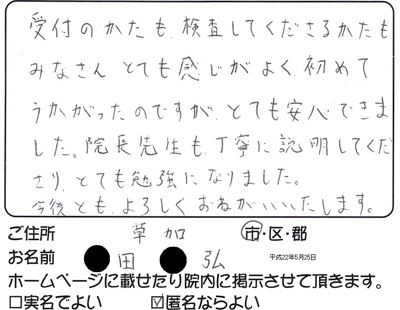 受付のかたも、検査してくださるかたも
みなさん とても感じがよく、初めて
うかがったのですが、とても安心できま
した。院長先生も、丁寧に説明してくだ
さり、とても勉強になりました。
今後とも、よろしくおねがいいたします。
ご住所 草加 市・区・郡
お名前 ●田 ●弘 平成22年5月25日
ホームページに載せたり院内に掲示させて頂きます。
□実名でよい ☑匿名ならよい